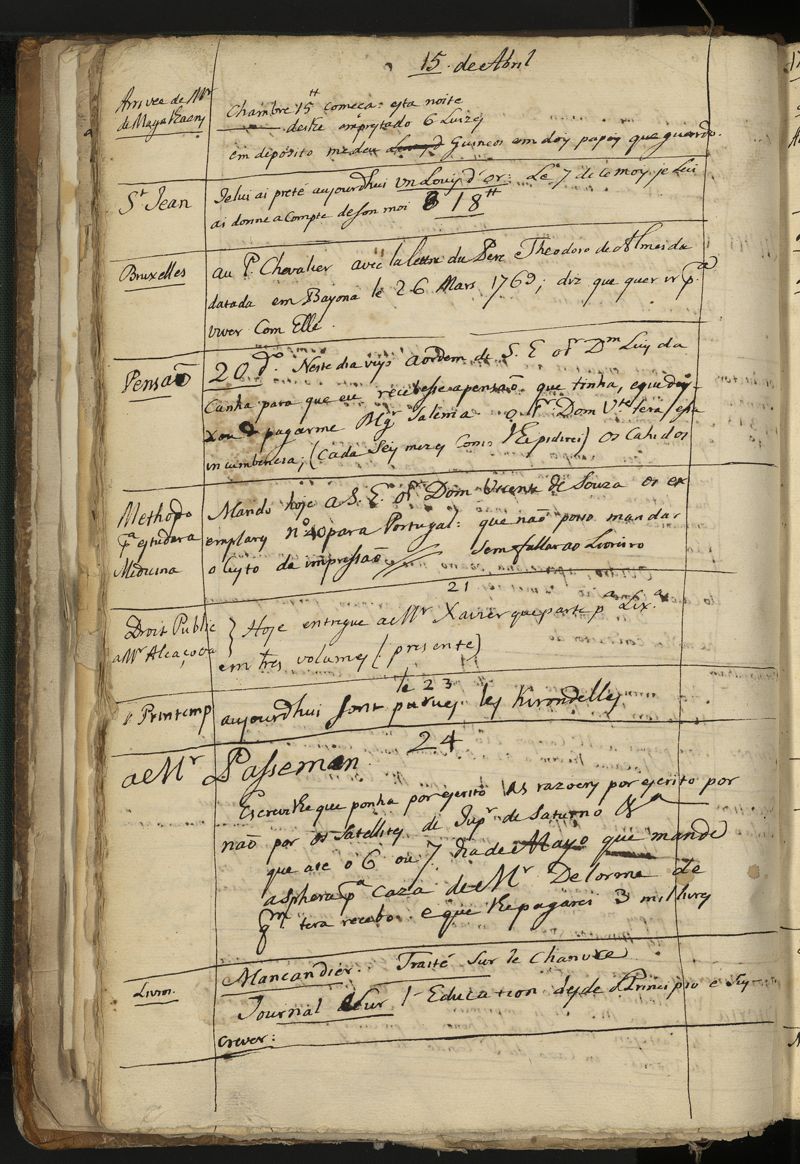 15. de Abril
Arrivee de Mr
de Magalhaens
Chambre 15 tt comeca esta noite
deilhe emprestado 6 Luizes
em deposito me deu Guineos em dois papeis que guardo.
St Jean
Je lui ai preté aujourdhui un Louis d'or: Le 7 de ce mois je Lui
ai donne a compte de son moi 18 tt
Bruxelles
au P. Chevalier avec la lettre du Pere Theodoro de Almeida
datada em Bayona le 26 Mars 1769; diz que quer ir pa
viver Com Elle.
Pensaõ
20 do. Neste dia veyo a ordem de S. E o Sr Dm Luis da
Cunha para que eu recebesse a pensaõ que tinha, e
pagarme Mgr Salema o Sr Dom Vte tera esta
incumbencia; (Cada Seis mezes Como lhe pedirei) os Cahidos
Methodo
pa estudar a
Medicina
Mando hoje a S. E. o Sr Dom Vicente de Souza os ex
emplares no 40 para Portugal: que naõ posso mandar
o custo da impressaõ // Sem fallar ao Livreiro
21
Droit Public
a Mr Alcaçova
} Hoje entregue a Mr Xavier que parte pa Lixa
em tres volumes (presente)
le 23
le Printemp
aujourdhui sont parues les hirondelles
24
a Mr Passeman
Escrevilhe que ponha por escrito As razoens por escrito por
naõ por os Satellites de Jupr de Saturno &a
que ate o 6 ou 7 dia de Mayo que mande
a sphera pa caza de Mr Delorme de
qm tera recebo e que lhe pagarei 3 mil livres
Livros.
Mancandier. Traité Sur le Chanvre
Journal Sur l'Education desde o Principio e Sus
crever: